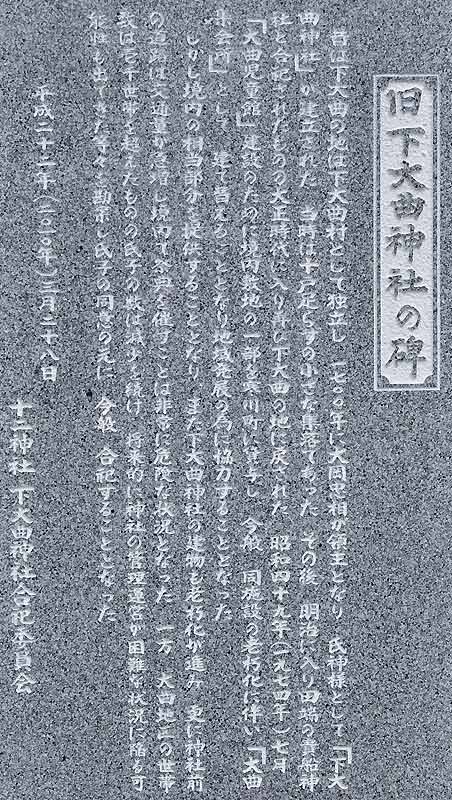 旧下大曲神社の碑
昔は下大曲の地は下大曲村として独立し 一七〇〇年に大岡忠相が領主となり 氏神様として「下大
曲神社」が建立された 当時は十戸足らずの小さな集落であった その後 明治に入り田端の貴船神
社と合祀されたものの大正時代に入り再び下大曲の地に戻された 昭和四十九年(一九七四年)七月
「大曲児童館」建設のために境内敷地の一部を寒川町に貸与し 今般 同施設の老朽化に伴い「大曲
集会所」として 建て替えることとなり地域発展の為に協力することとなった
しかし境内の相当部分を提供することとなり また下大曲神社の建物も老朽化が進み 更に神社前
の道路は交通量が急増し境内で祭典を催すことは非常に危険な状況となった 一方 大曲地区の世帯
数は元千世帯を超えたものの氏子の数は減少を続け 将来的に神社の管理運営が困難な状況に陥る可
能性も出てきた等々を勘案し氏子の同意の元に 今般 合祀することとなった
平成二十二年(二〇一〇年)三月二十八日
十二神社 下大曲神社合祀委員会